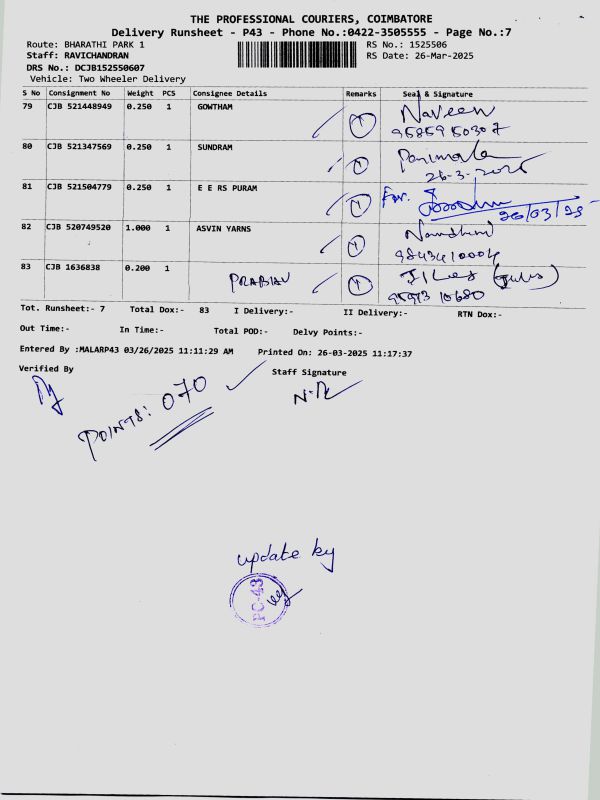 THE PROFESSIONAL COURIERS, COIMBATORE
Delivery Runsheet - P43 - Phone No.:0422-3505555 - Page No.:7
Route: BHARATHI PARK 1 RS No.: 1525506
Staff: RAVICHANDRAN RS Date: 26-Mar-2025
DRS No.: DCJB152550607
Vehicle: Two Wheeler Delivery
S No Consignment No Weight PCS Consignee Details Remarks Seal & Signature
79 CJB 521448949 0.250 1 GOWTHAM Naveen
9585950307
80 CJB 521347569 0.250 1 SUNDRAM Parimala
26-3-2025
81 CJB 521504779 0.250 1 E E RS PURAM For.
26/03/25
82 CJB 520749520 1.000 1 ASVIN YARNS
9843410004
83 CJB 1636838 0.200 1 PRABHU
10680
Tot. Runsheet:- 7 Total Dox:- 83 I Delivery:- II Delivery:- RTN Dox:-
Out Time:- In Time:- Total POD:- Delvy Points:-
Entered By :MALARP43 03/26/2025 11:11:29 AM Printed On: 26-03-2025 11:17:37
Verified By Staff Signature
POINTS: 070
update by
PC-43